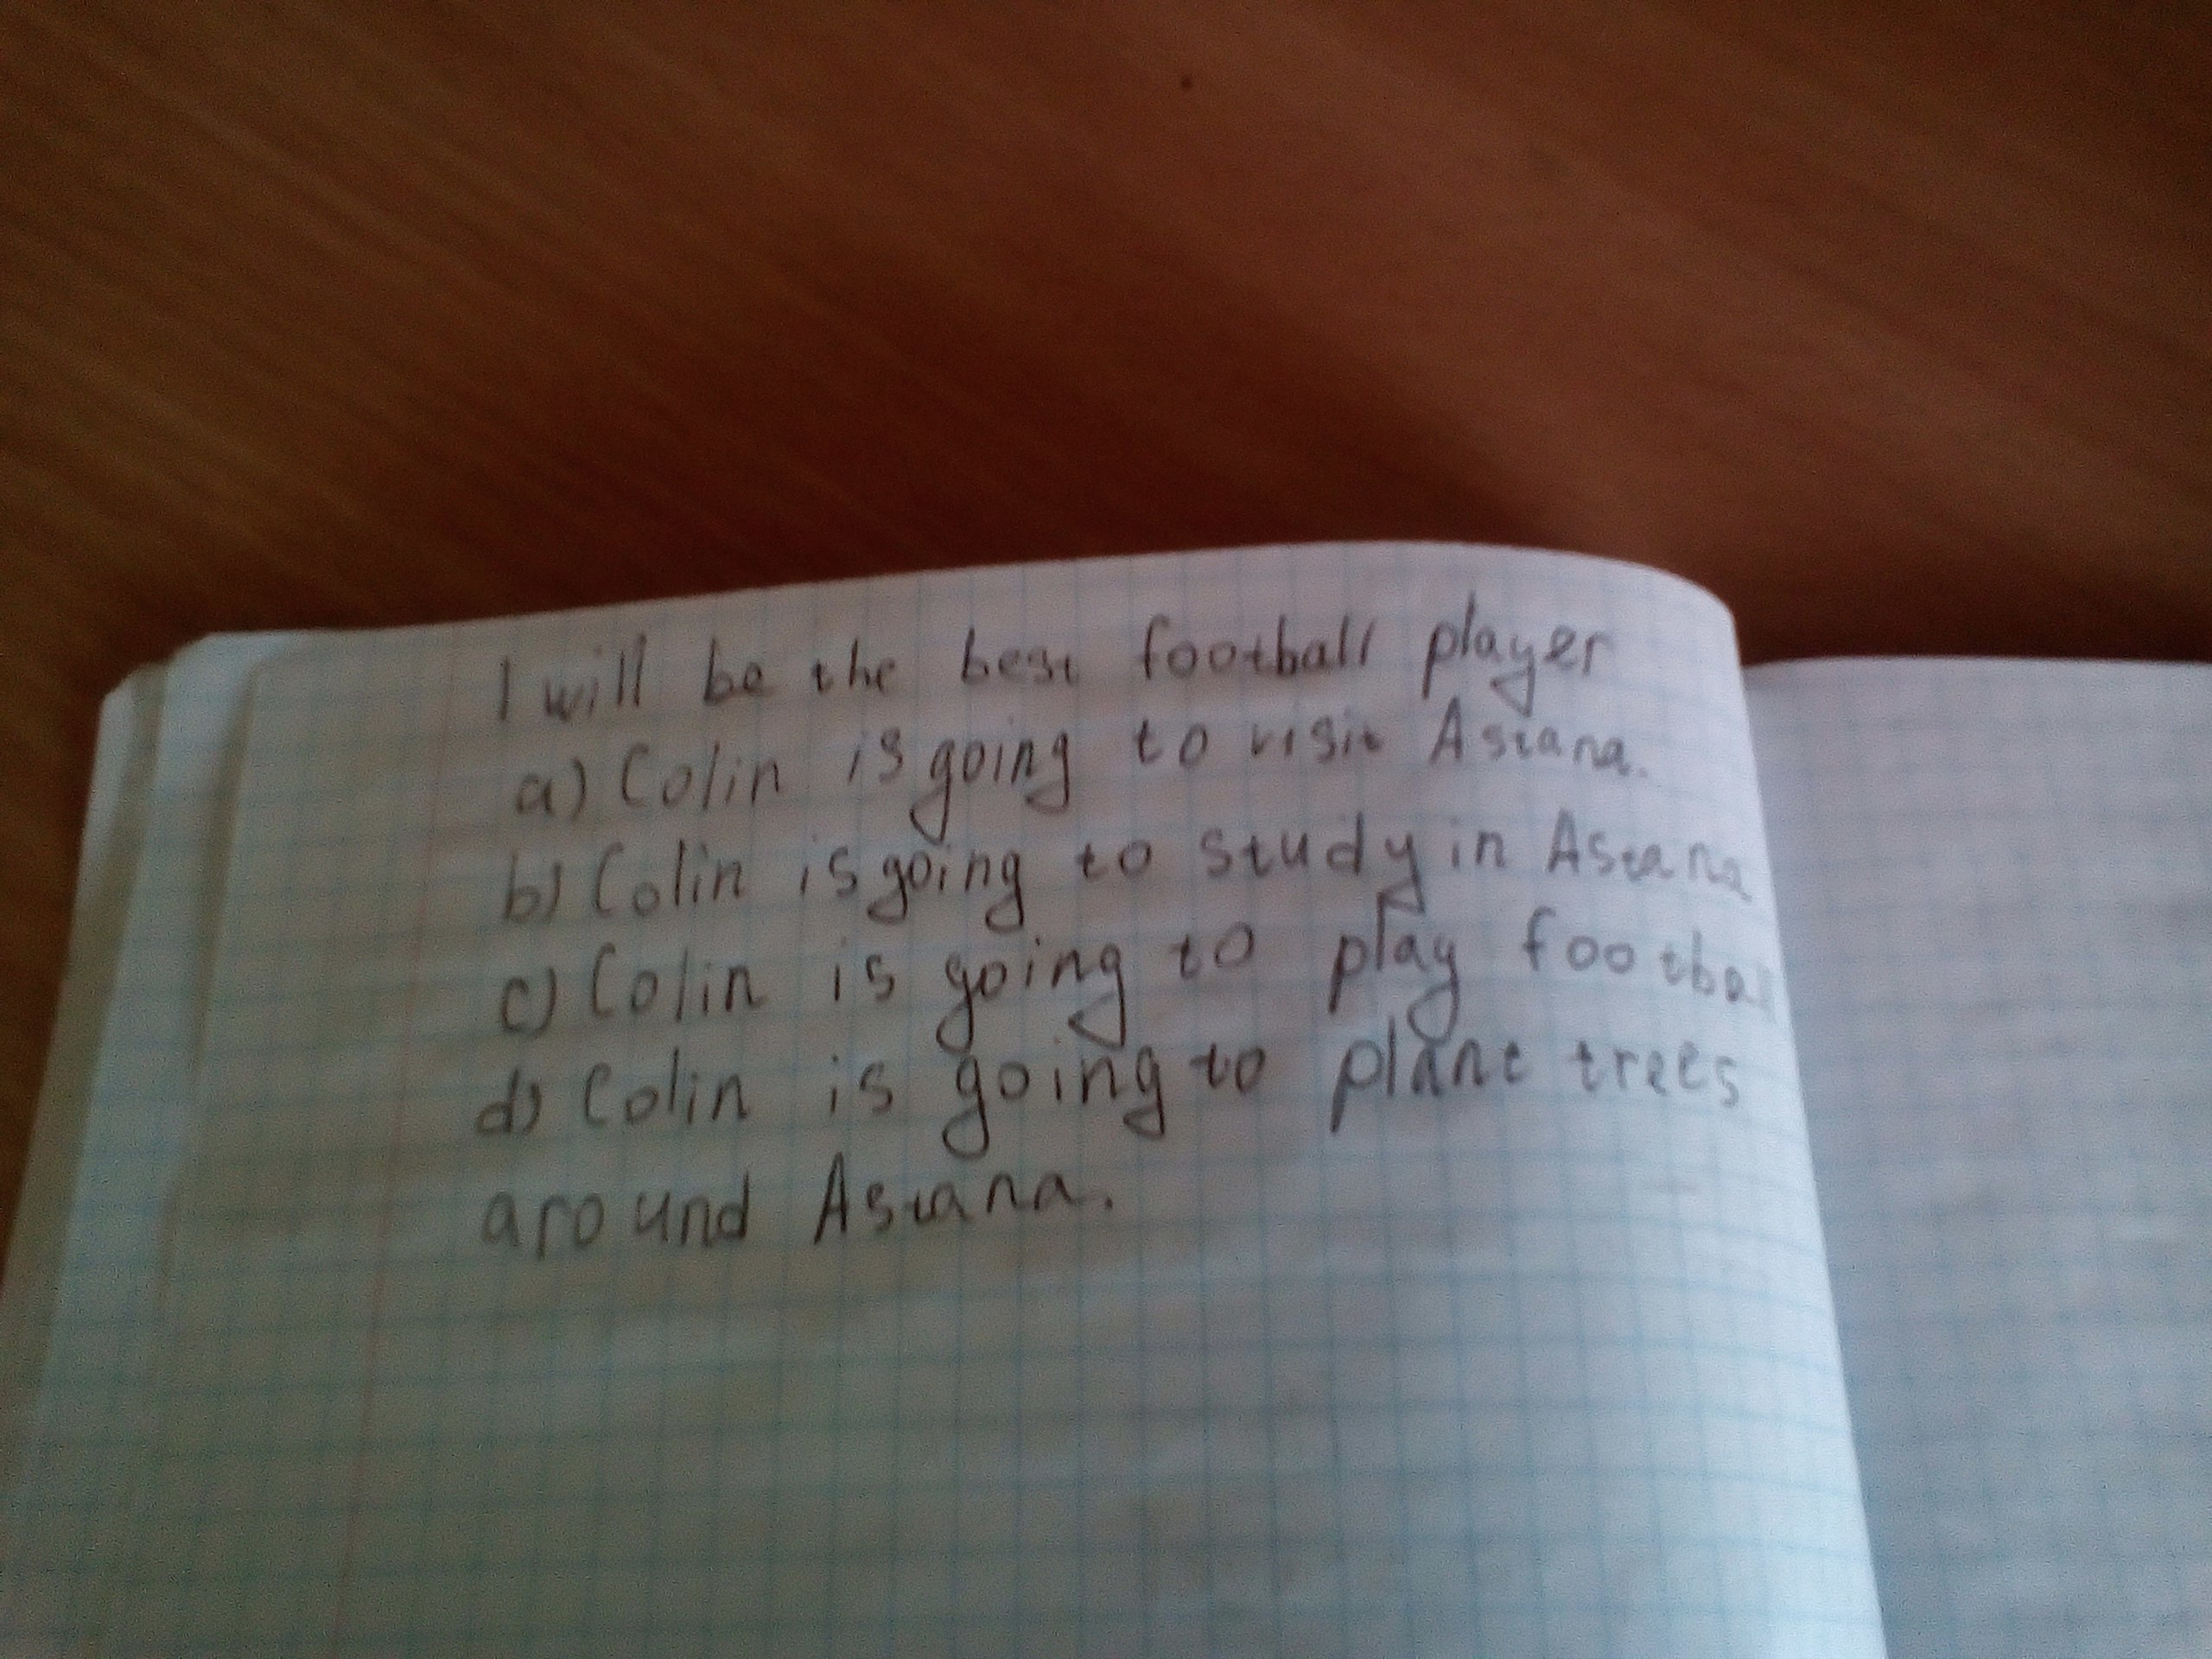 I will be the best football player
a) Colin is going to visit Astana.
b) Colin is going to study in Astana
c) Colin is going to play football
d) Colin is going to plant trees
around Astana.